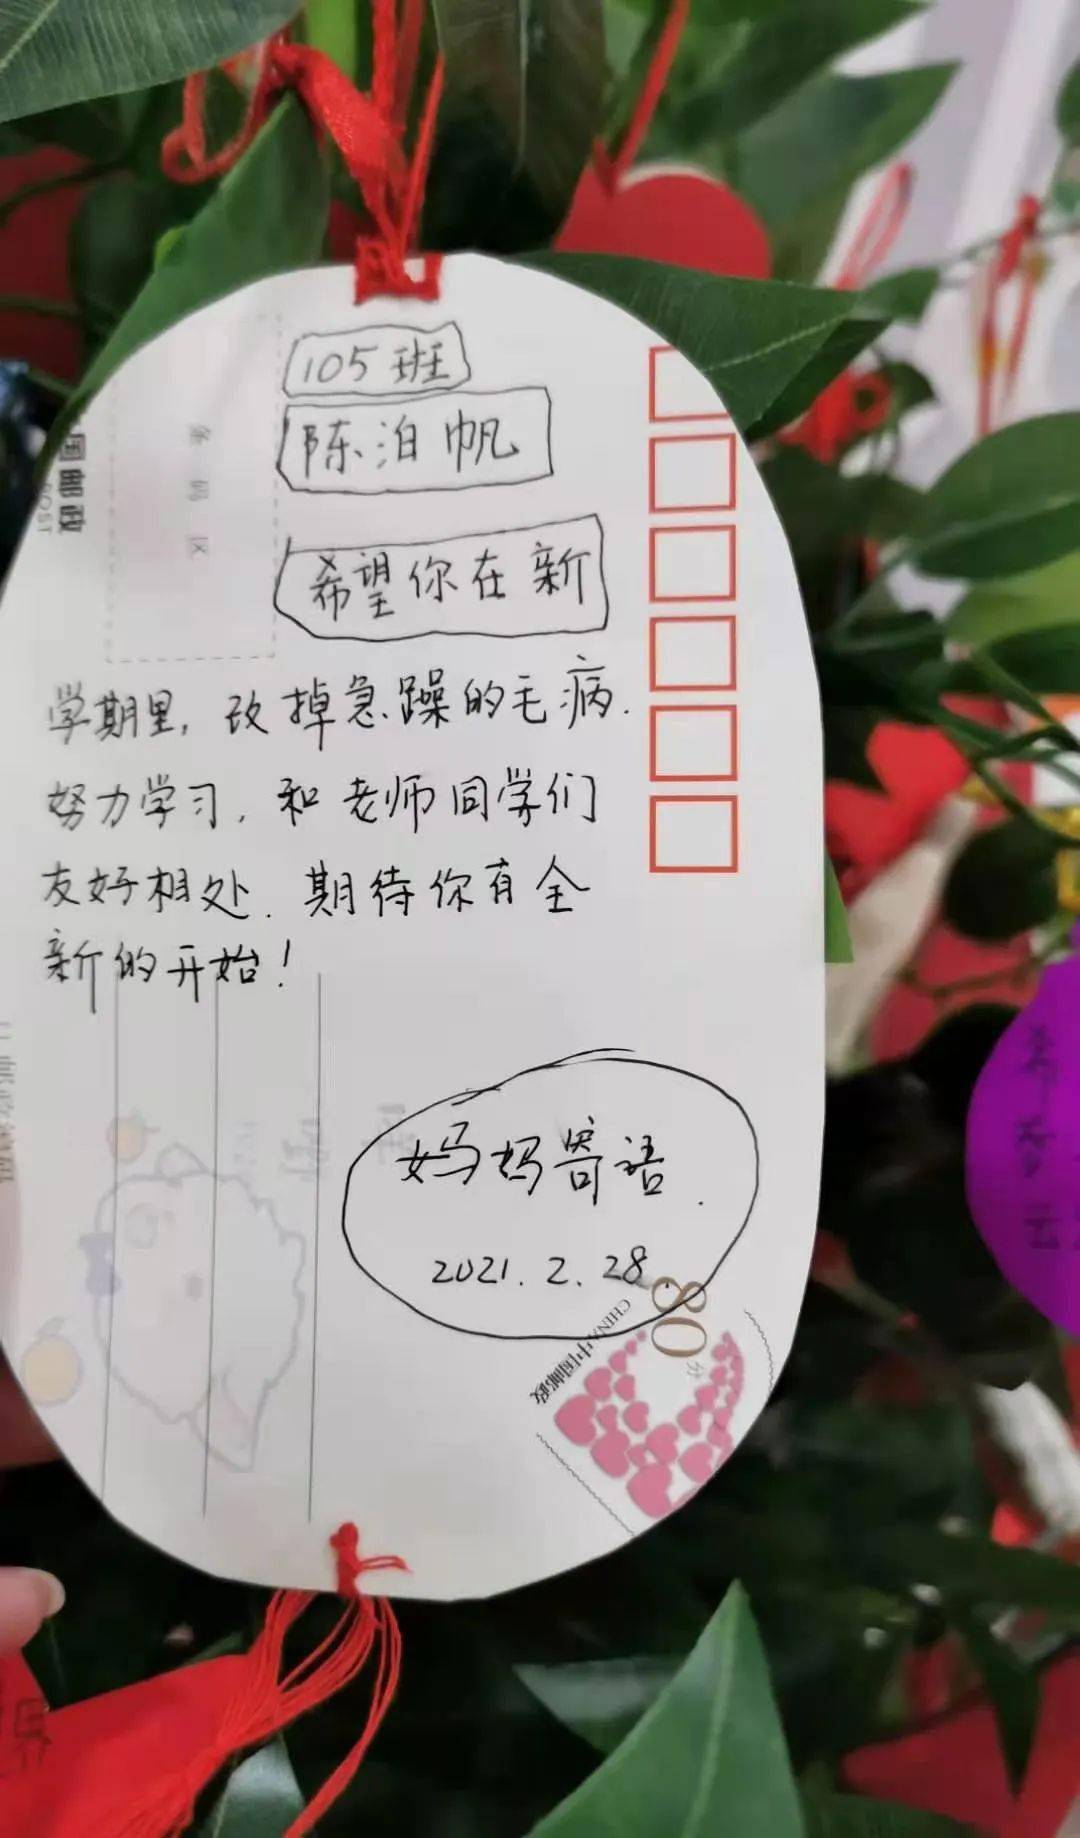 105班
陈泊帆
希望你在新
学期里，改掉急躁的毛病.
努力学习，和老师同学们
友好相处. 期待你有全
新的开始！
妈妈寄语.
2021.2.28
80分
CHINA中国邮政
国邮政
POST
条码区